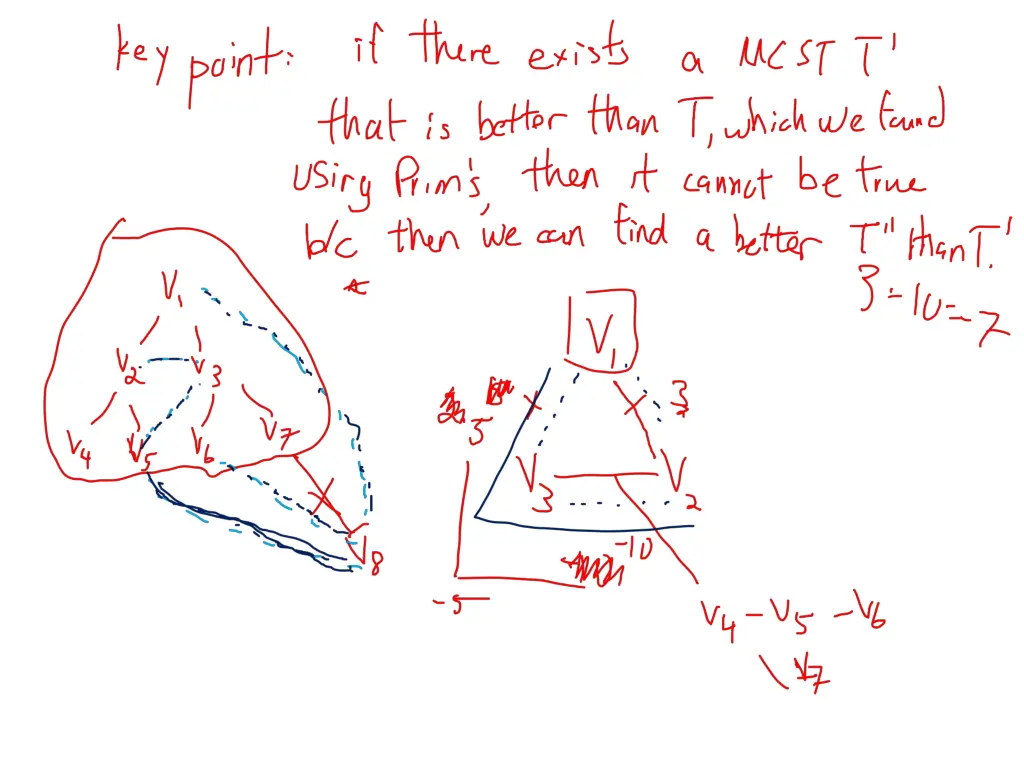 key point: if there exists a MCST T'
that is better than T, which we found
using Prim's, then it cannot be true
b/c then we can find a better T" than T'.
3-10=-7
V1
V2 V3
V4 V5 V6 V7
V8
V1
5 3
V3 V2
-10
-5
V4 - V5 - V6
V7